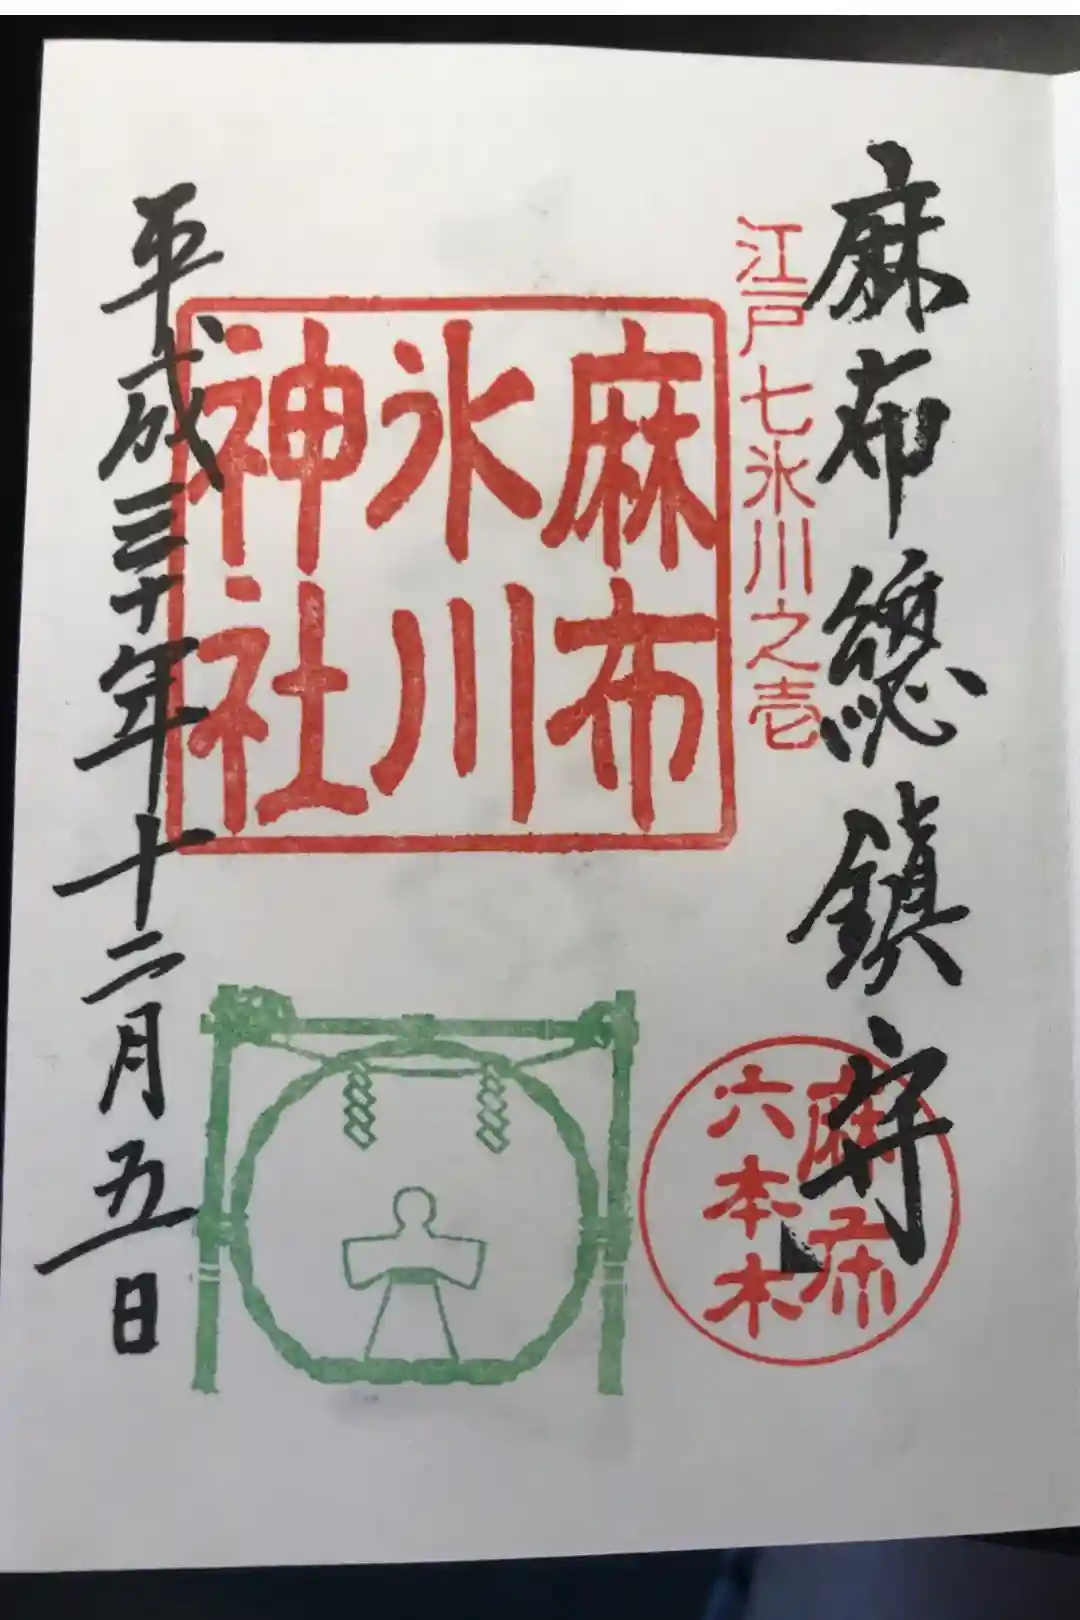 麻布總鎮守
江戸七氷川之壱
麻布
氷川
神社
麻布
六本木
平成三十年十二月五日